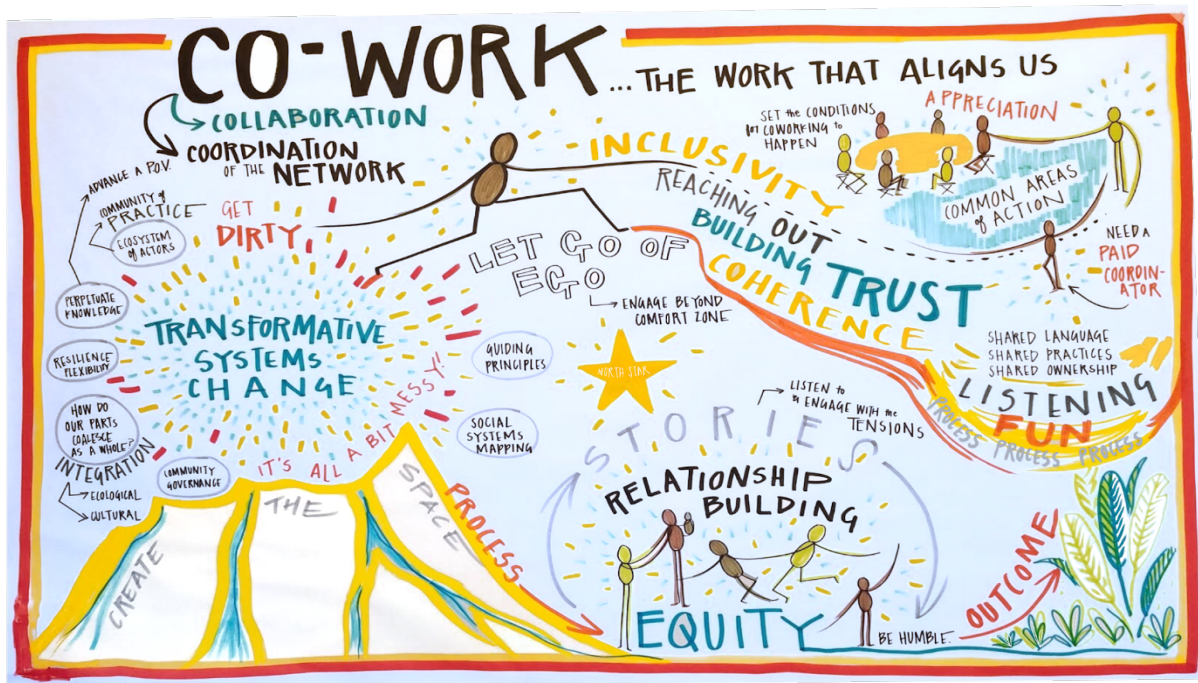 CO-WORK
...THE WORK THAT ALIGNS US
COLLABORATION
COORDINATION
OF THE NETWORK
ADVANCE A P.O.V.
COMMUNITY of
PRACTICE
ECOSYSTEM
of ACTORS
GET
DIRTY
PERPETUATE
KNOWLEDGE
RESILIENCE
FLEXIBILITY
HOW DO
OUR PARTS
COALESCE
AS A WHOLE?
INTEGRATION
ECOLOGICAL
CULTURAL
COMMUNITY
GOVERNANCE
TRANSFORMATIVE
SYSTEMS
CHANGE
IT'S ALL A BIT MESSY!
GUIDING
PRINCIPLES
SOCIAL
SYSTEMS
MAPPING
CREATE
THE
SPACE
PROCESS
LET GO OF
EGO
ENGAGE BEYOND
COMFORT ZONE
NORTH STAR
INCLUSIVITY
REACHING OUT
BUILDING TRUST
COHERENCE
SET the CONDITIONS
for COWORKING to
HAPPEN
APPRECIATION
COMMON AREAS
of ACTION
NEED A
PAID
COORDIN-
ATOR
SHARED LANGUAGE
SHARED PRACTICES
SHARED OWNERSHIP
LISTENING
FUN
PROCESS PROCESS PROCESS
LISTEN to
& ENGAGE WITH the
TENSIONS
STORIES
RELATIONSHIP
BUILDING
EQUITY
BE HUMBLE
OUTCOME